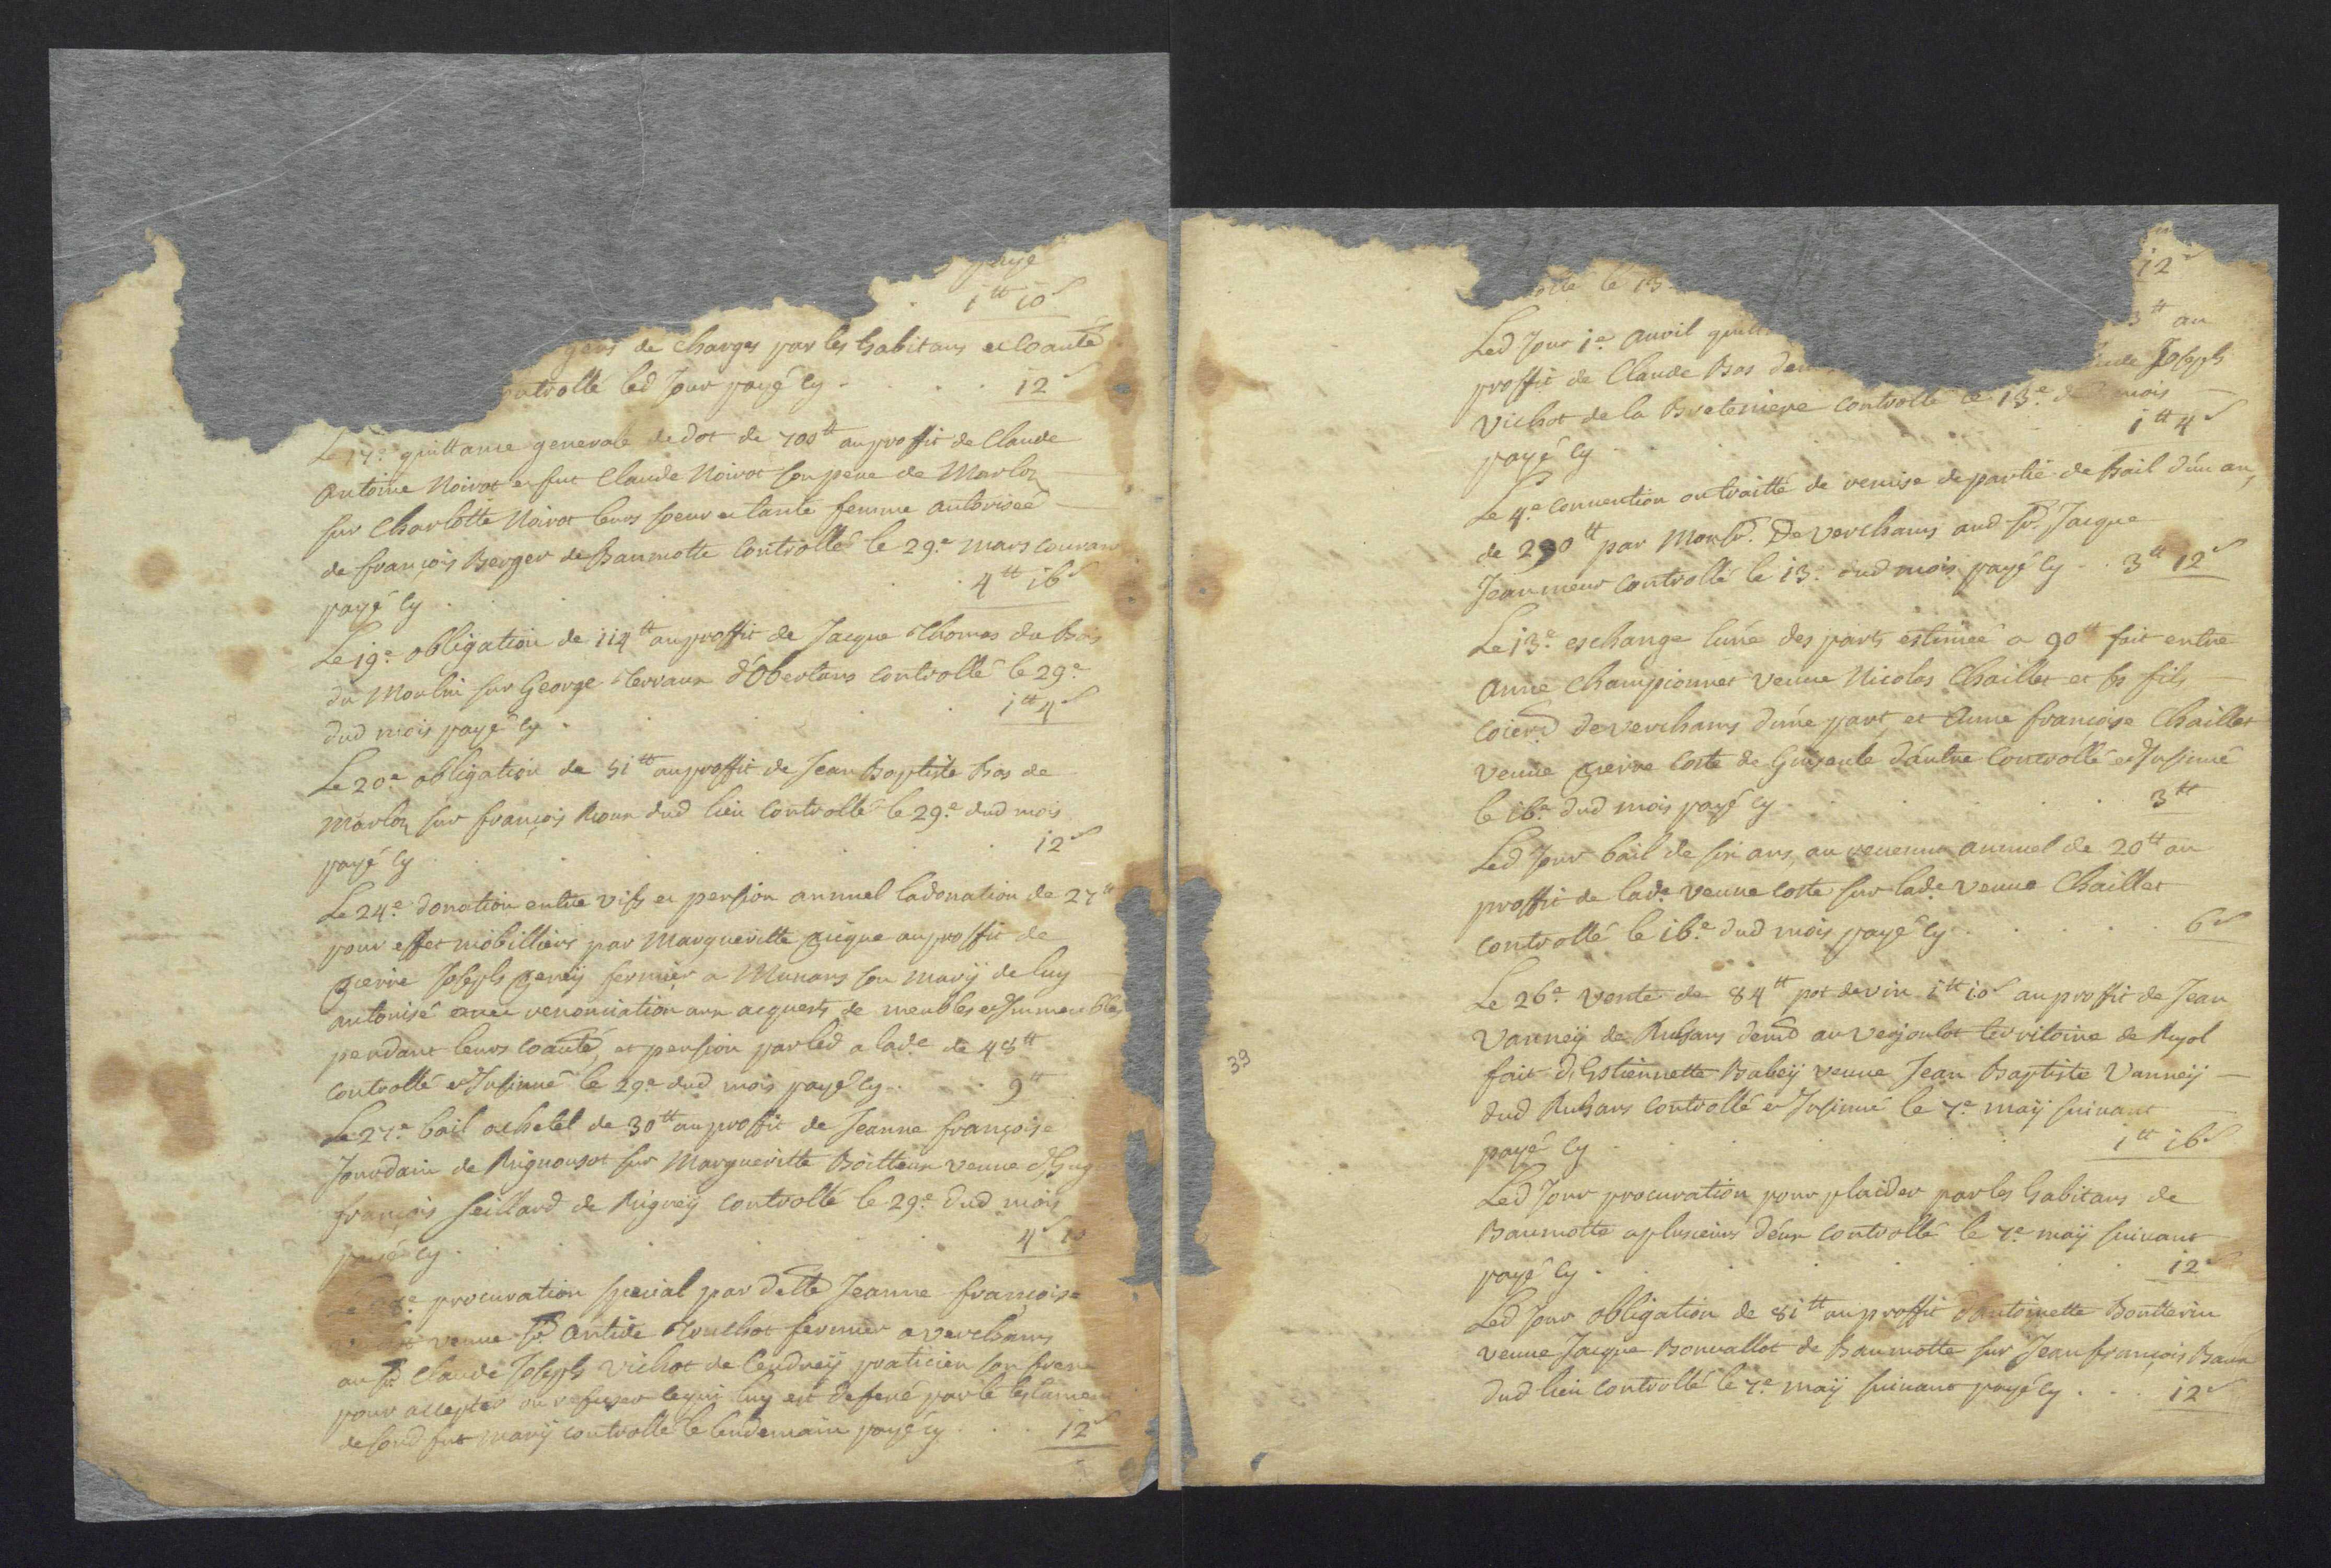 payé
1tt 10s
gers de charges par les habitans et Coauté
controllé led Jour payé Cy . . . . 12s
Le 17e. quittance generale de dot de 700tt au proffit de Claude
Antoine Noirot et fut Claude Noirot son pere de Marloz
sur Charlotte Noirot leurs soeur et tante femme autorisée
de françois Berger de Baumotte Controllé le 29e. mars courant
payé Cy . . . 4tt 16s
Le 19e. obligation de 114tt au proffit de Jacque Thomas du Bois
du Moulin sur George Terraux d'Obertans controllé le 29e
dud mois payé Cy . . . 1tt 4s
Le 20e obligation de 51tt au proffit de Jean Baptiste Bas de
Marloz sur françois Roux dud lieu Controllé le 29e. dud mois
payé Cy . . . 12s
Le 24e. donation entre vifs et pension annuel la donation de 27tt
pour effet mobilliers par Margueritte pour au proffit de
pierre Joseph fermier a Munans son marÿ de luy
autorisé avec renonciation aux acquests de meubles et Immeubles
pendant leurs Coauté, et pension par led a lade. de 48tt
controllé et Insinué le 29e dud mois payé Cy . . 9tt
Le 27e. bail a chetel de 30tt au proffit de Jeanne françoise
Jourdain de Rignousot sur Margueritte Boitteux veuve d'Hugu
françois Seillard de Rigneÿ controllé le 29e. dud mois
payé Cy . . . 4s
Le 28e. procuration special par delle Jeanne françoise
veuve Sr. Antide Truchot fermier a verchams
au Sr Claude Joseph Vichot de Cendreÿ praticien son frere
pour accepter ou refuser le qui luy est deferé par le testament
de sond fut marÿ controllé le lendemain payé Cy . . . 12s
12s
le 13
Led Jour 1er. avril quitt 3tt au
proffit de Claude Bas dem Joseph
Vichot de la Breteniere controllé le 13e. dud mois
payé Cy . . . 1tt 4s
Le 4e. convention ou traitté de remise de partie de bail d'un an,
de 290tt par Monsr. De verchams aud Sr. Jacque
Jeanmeur Controllé le 13e. dud mois payé Cy . . 3tt 12s
Le 13e. eschange l'une des parts estimée a 90tt fait entre
Anne Championnet veuve Nicolas Chaillet et ss fils
de verchams d'une part et Anne françoise Chaillet
veuve pierre Coste de Guisante d'autre Controllé et Insinué
le 16e. dud mois payé Cy . . . 3tt
Led Jour bail de six ans, au revenu annuel de 20tt au
proffit de lade. veuve Coste sur lade. veuve Chaillet
controllé le 16e. dud mois payé Cy . . . 6s
Le 26e. vente de 84tt pot de vin 1tt 10s au proffit de Jean
Vanneÿ de Ruhans demt au Verjoulot territoire de Ruyol
fait d'Estiennette Babeÿ veuve Jean Baptiste Vanneÿ
dud Ruhans controllé et Insinué le 7e. maÿ suivant
payé Cy . . . 1tt 16s
Led Jour procuration pour plaider par les habitans de
Baumotte a plusieurs d'eux controllé le 7e. maÿ suivant
payé Cy . . . 12s
Led Jour obligation de 81tt au proffit d'Antoinette Boutterin
veuve Jacque Bonvallot de Baumotte sur Jean françois Baux
dud lieu controllé le 7e. maÿ suivant payé Cy . . . 12s
33